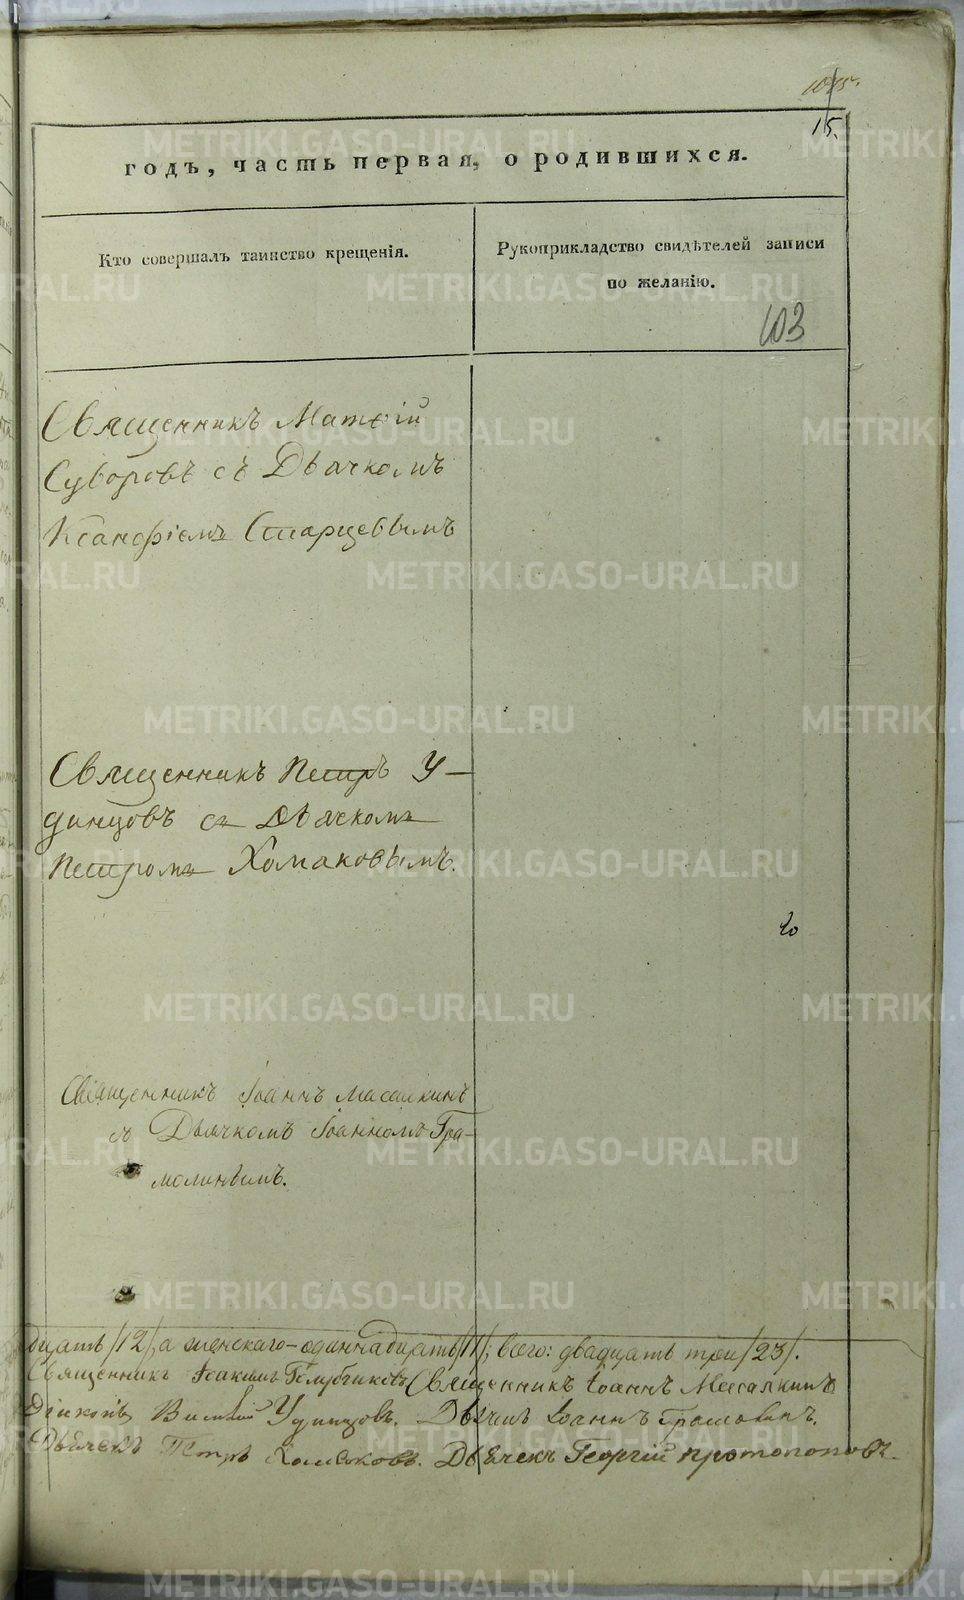 15.
годъ, часть первая, о родившихся.
Кто совершалъ таинство крещенія.
Рукоприкладство свидѣтелей записи
по желанію.
103
Священникъ Матѳій
Суворовъ съ Дьячкомъ
Ксанофіемъ Старцевымъ
Священникъ Петръ У-
динцовъ съ Дьячкомъ
Петромъ Хомяковымъ.
Священникъ Іоаннъ Масалкинъ
съ Дьячкомъ Іоанномъ Гра-
молинымъ.
дцать /12/, а женскаго - одиннадцать /11/, всего: двадцать три /23/.
Священникъ Іоакимъ Голубчиковъ Священникъ Іоаннъ Масалкинъ
Діаконъ Удинцовъ. Дьячекъ Іоаннъ Грамолинъ.
Дьячекъ Петръ Хомяковъ. Дьячекъ Георгій Протопоповъ.
METRIKI.GASO-URAL.RU